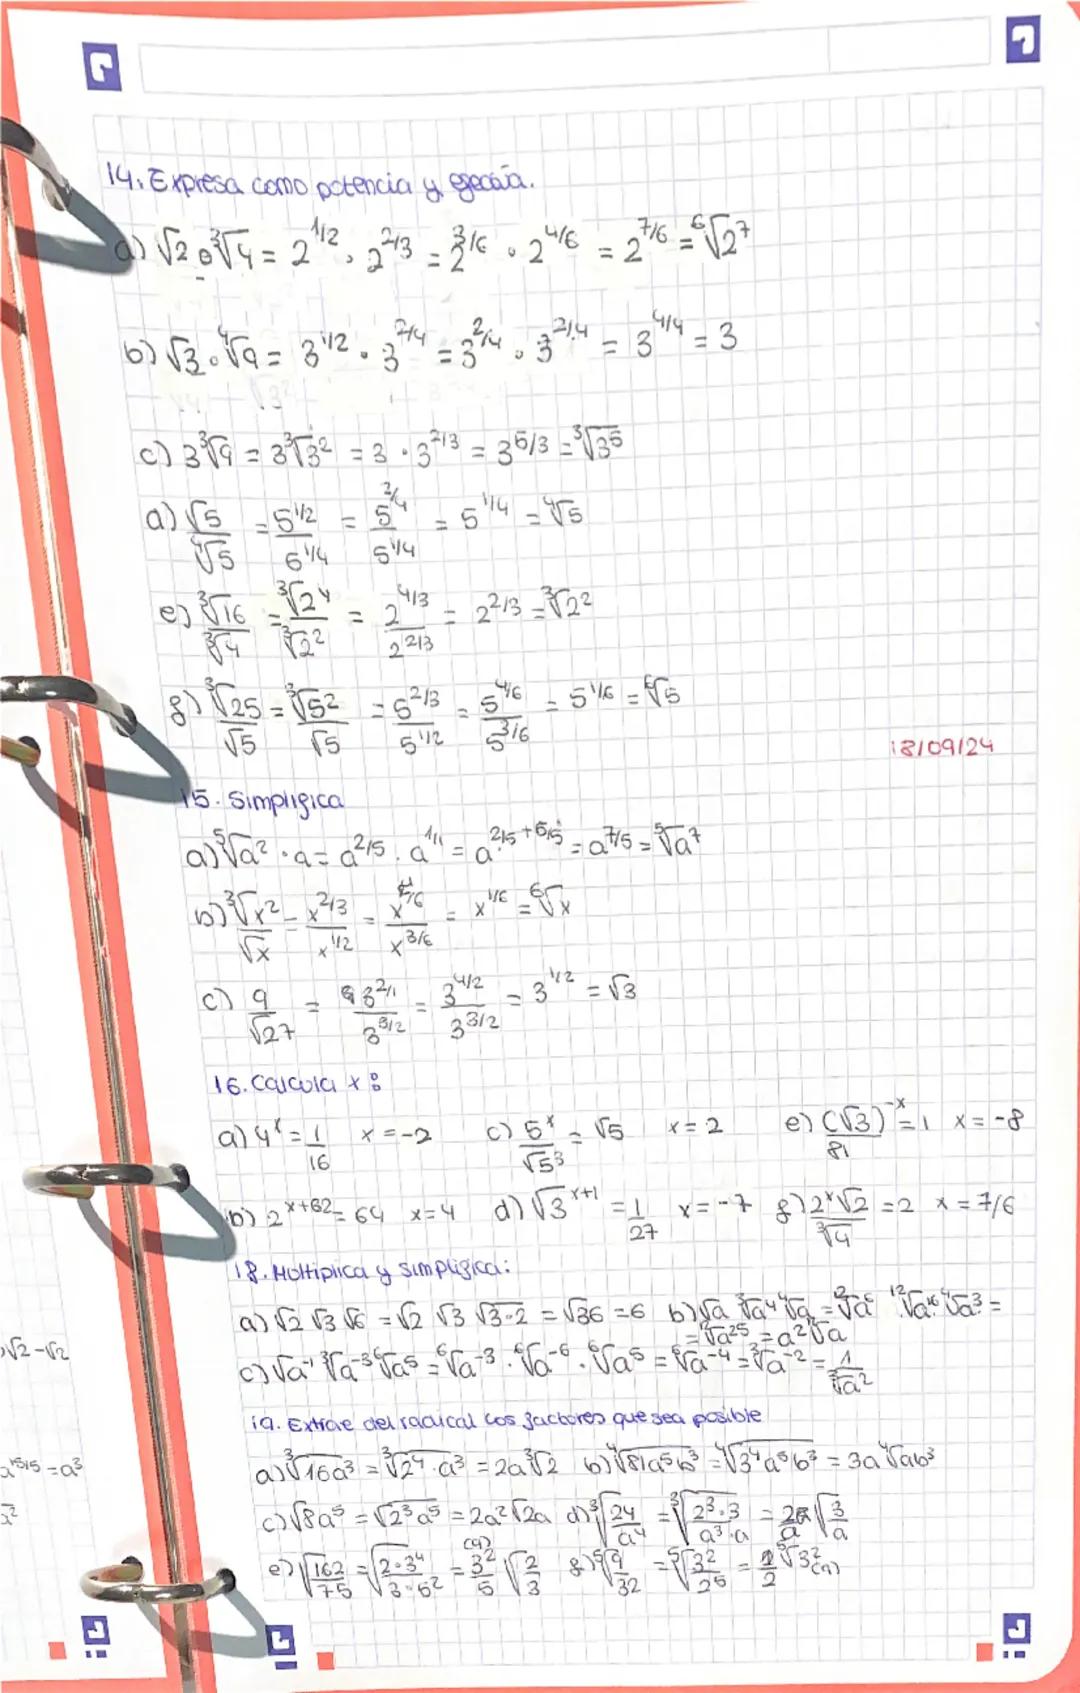 14. Expresa como potencia y ejecuta.
a) √2 · ³√4 = 2^1/2 · 2^2/3 = 2^3/6 · 2^4/6 = 2^7/6 = ⁶√2⁷
b) √3 · ⁴√9 = 3^1/2 · 3^2/4 = 3^2/4 · 3^2/4 = 3^4/4 = 3
c) 3³√9 = 3³√3² = 3 · 3^2/3 = 3^5/3 = ³√3⁵
d) √5/⁴√5 = 5^1/2/5^1/4 = 5^2/4/5^1/4 = 5^1/4 = ⁴√5
e) ³√16/³√4 = ³√2⁴/³√2² = 2^4/3/2^2/3 = 2^2/3 = ³√2²
f) ³√25/√5 = ³√5²/√5 = 5^2/3/5^1/2 = 5^4/6/5^3/6 = 5^1/6 = ⁶√5
18/09/24
15. Simplifica
a) ⁵√a² · a = a^2/5 · a^1/1 = a^2/5+5/5 = a^7/5 = ⁵√a⁷
b) ³√x²/√x = x^2/3/x^1/2 = x^4/6/x^3/6 = x^1/6 = ⁶√x
c) 9/√27 = 3^2/1/3^3/2 = 3^4/2/3^3/2 = 3^1/2 = √3
16. Calcula x:
a) 4^x = 1/16 x = -2 c) 5^x/√5³ = √5 x = 2 e) (√3)^-x/81 = 1 x = -8
b) 2^x+62 = 64 x = 4 d) √3^x+1 = 1/27 x = -7 f) 2^x√2/³√4 = 2 x = 7/6
18. Multiplica y simplifica:
a) √2 √3 √6 = √2 √3 √3·2 = √36 = 6 b) √a ³√a⁴ ⁴√a = ¹²√a⁶ ¹²√a¹⁶ ¹²√a³ =
= ¹²√a²⁵ = a² ¹²√a
c) √a⁻¹ ³√a⁻³ ⁶√a⁵ = ⁶√a⁻³ · ⁶√a⁻⁶ · ⁶√a⁵ = ⁶√a⁻⁴ = ³√a⁻² = 1/³√a²
19. Extrae del radical los factores que sea posible
a) ³√16a³ = ³√2⁴·a³ = 2a³√2 b) ⁴√81a⁵b³ = ⁴√3⁴a⁵b³ = 3a⁴√ab³
c) √8a⁵ = √2³a⁵ = 2a²√2a d) ³√24/a⁴ = ³√2³·3/a³·a = 2/a ³√3/a
e) √162/75 = √2·3⁴/3·5² = 3²/5 (9) √2/3 f) ⁵√9/32 = ⁵√3²/2⁵ = 1/2 ⁵√3² (9)
√2-√2
a^15/5 = a³